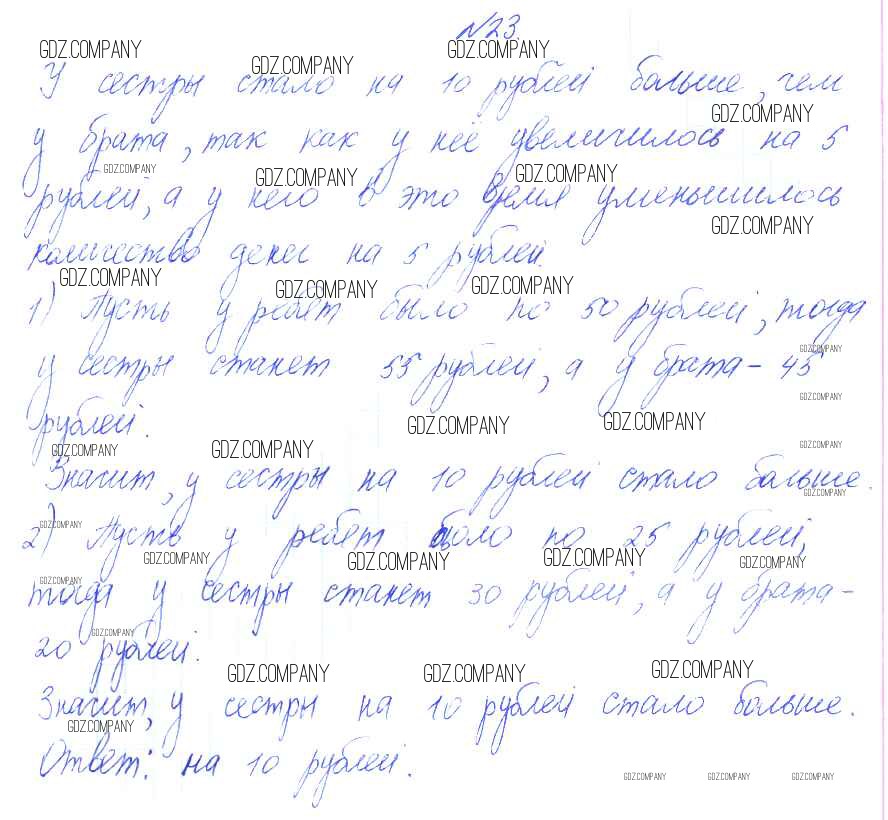 №23.
У сестры стало на 10 рублей больше, чем
у брата, так как у неё увеличилось на 5
рублей, а у него в это время уменьшилось
количество денег на 5 рублей.
1) Пусть у ребят было по 50 рублей, тогда
у сестры станет 55 рублей, а у брата – 45
рублей.
Значит, у сестры на 10 рублей стало больше.
2) Пусть у ребят было по 25 рублей,
тогда у сестры станет 30 рублей, а у брата –
20 рублей.
Значит, у сестры на 10 рублей стало больше.
Ответ: на 10 рублей.
GDZ.COMPANY GDZ.COMPANY GDZ.COMPANY
GDZ.COMPANY
GDZ.COMPANY GDZ.COMPANY GDZ.COMPANY
GDZ.COMPANY
GDZ.COMPANY GDZ.COMPANY GDZ.COMPANY
GDZ.COMPANY
GDZ.COMPANY
GDZ.COMPANY GDZ.COMPANY
GDZ.COMPANY GDZ.COMPANY GDZ.COMPANY
GDZ.COMPANY
GDZ.COMPANY
GDZ.COMPANY GDZ.COMPANY GDZ.COMPANY GDZ.COMPANY
GDZ.COMPANY
GDZ.COMPANY
GDZ.COMPANY GDZ.COMPANY GDZ.COMPANY
GDZ.COMPANY
GDZ.COMPANY GDZ.COMPANY GDZ.COMPANY